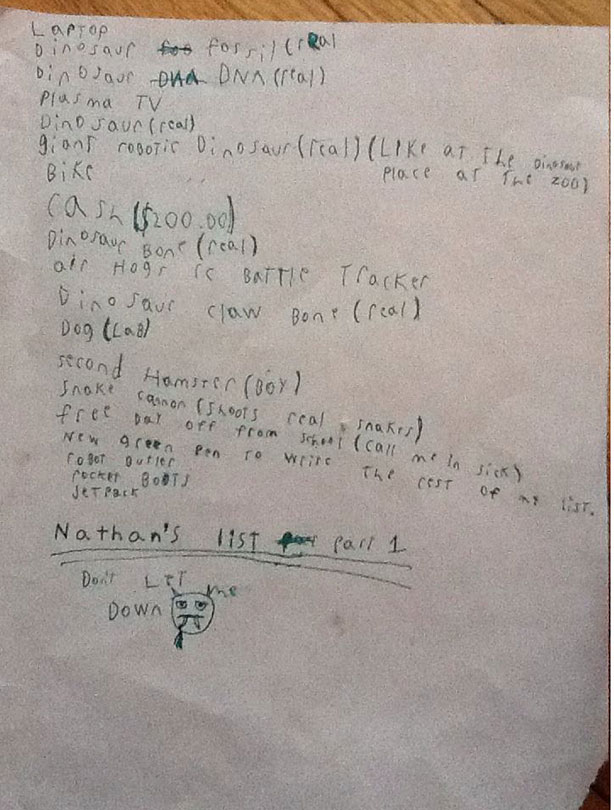 Laptop
Dinosaur fossil (real
Dinosaur DNA DNA (real)
Plasma TV
Dinosaur (real)
giant robotic Dinosaur (real) (Like at the Dinosaur
place at the zoo)
Bike
cash ($200.00)
Dinosaur Bone (real)
air Hogs rc Battle Tracker
Dinosaur claw Bone (real)
Dog (Lab)
second Hamster (Boy)
snake cannon (shoots real snakes)
free Day off from school (call me in sick)
New green pen to write the rest of my list.
robot butler
rocket Boots
Jetpack
Nathan's list part 1
Don't Let me
Down